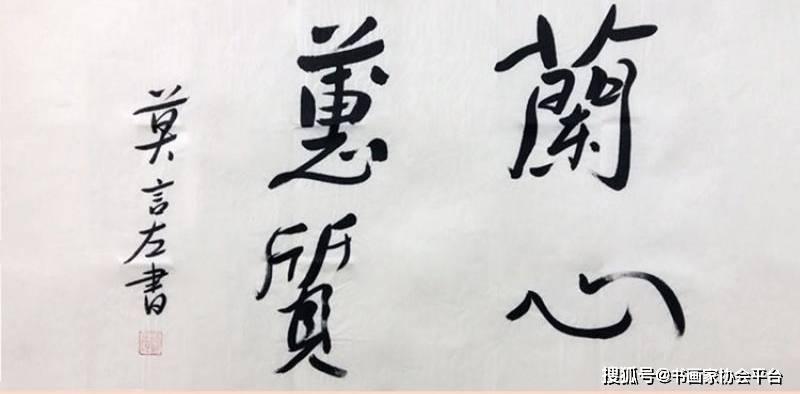 蘭心
蕙質
莫言左書
搜狐号@书画家协会平台